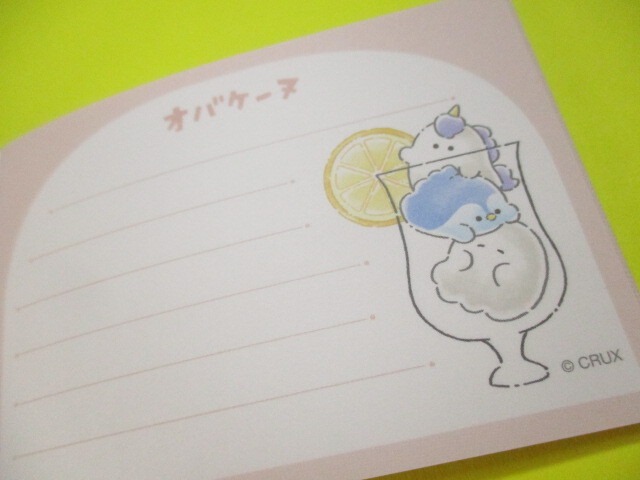 オバケーヌ
© CRUX